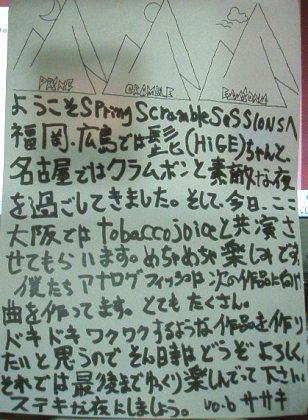 ようこそ Spring Scramble SessionSへ
福岡、広島では髭(HiGE)ちゃんと、
名古屋ではクラムボンと素敵な夜
を過ごしてきました。そして、今日、ここ
大阪では tobaccojuiceと共演さ
せてもらいます。めちゃめちゃ楽しみです。
僕たちアナログフィッシュは次の作品に向け
曲を作ってます。とてもたくさん。
ドキドキワクワクするような作品を作り
たいと思うので そん時はどうぞよろしく
それでは最後までゆっくり楽しんでって下さい
ステキな夜にしましょう。 vo.b ササキ